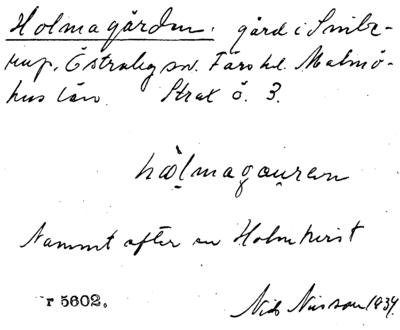 Holmagården. gård i Smibe-
rup, Östraby sn. Färs hd. Malmö-
hus län. Strax ö. 3.
hòlmagauren
Namnt after en Holmkvist
r 5602. Nils Nilsson 1934.